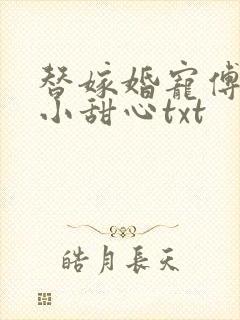 替嫁婚宠傅
小甜心txt
皓月長天